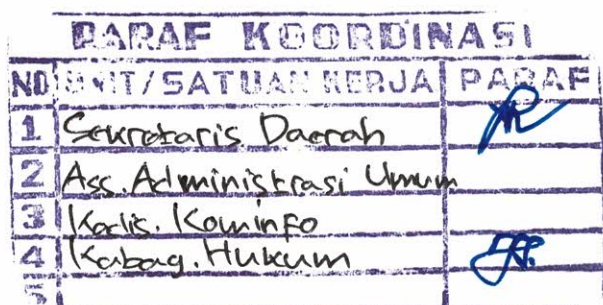 PARAF KOORDINASI
NO UNIT/SATUAN KERJA PARAF
1 Sekretaris Daerah
2 Ass. Administrasi Umum
3 Kadis. Kominfo
4 Kabag. Hukum
5